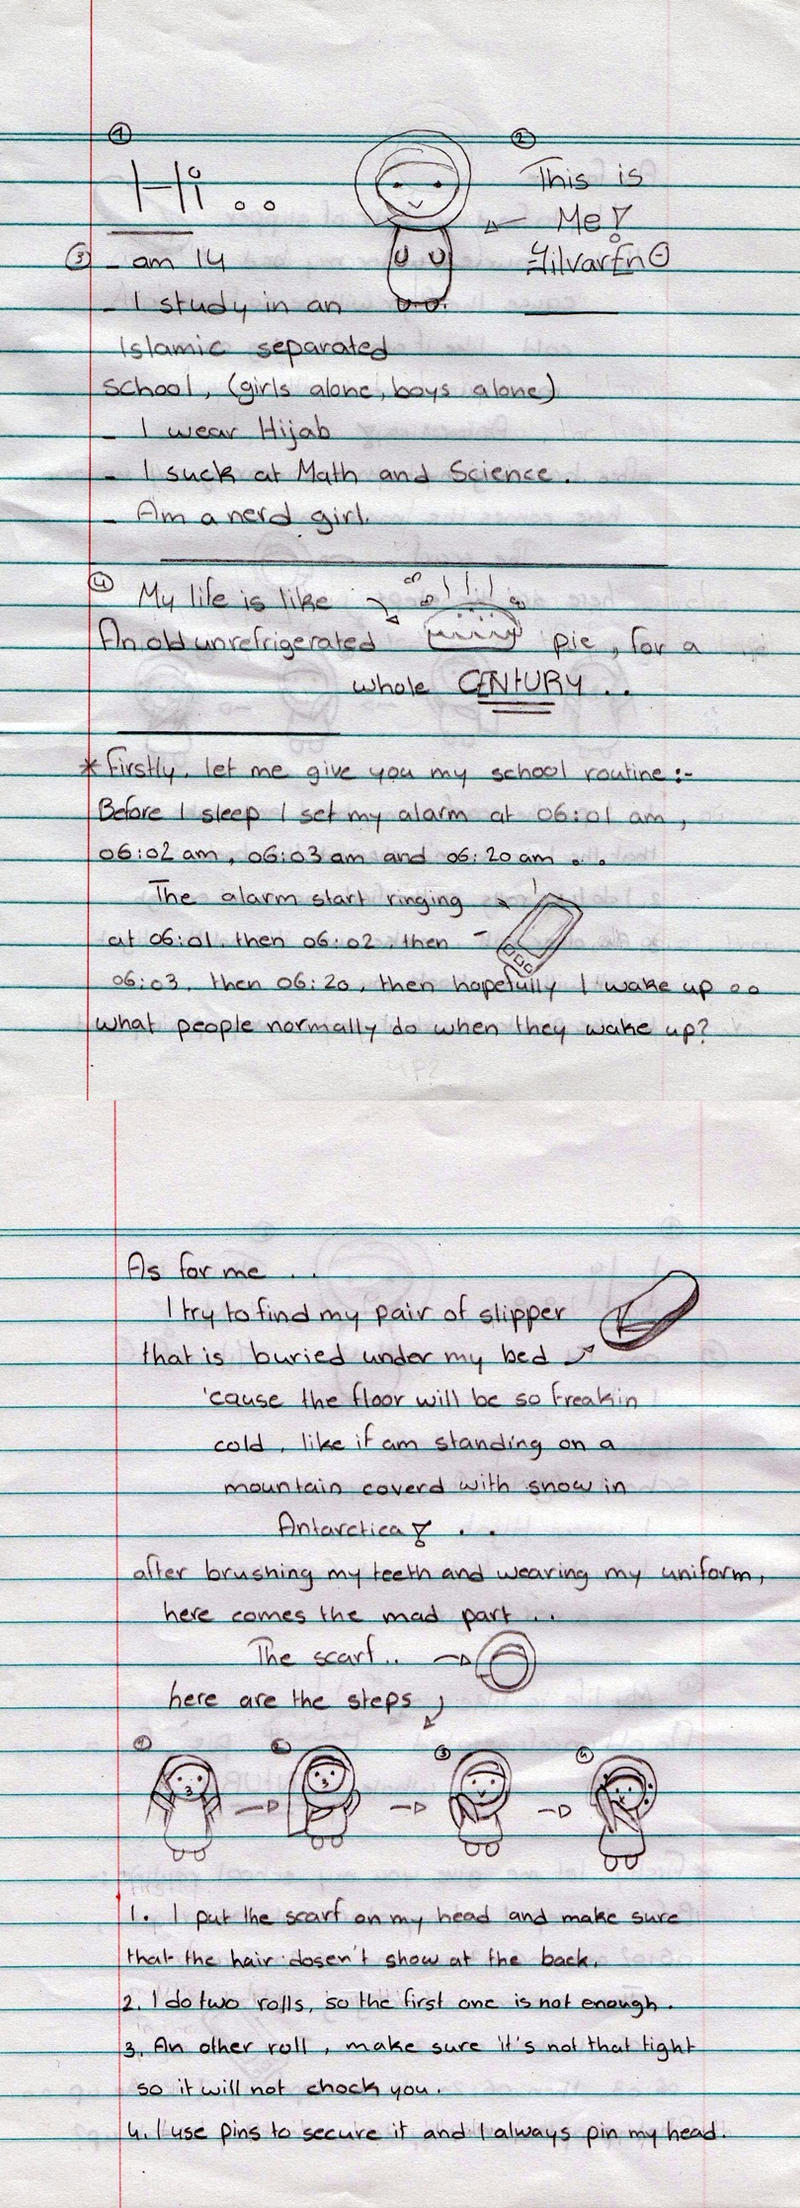 1
Hi ..
2
This is
Me!
3 - am 14
- I study in an
Islamic separated
school, (girls alone, boys alone)
- I wear Hijab
- I suck at Math and Science.
- Am a nerd girl.
4 My life is like
An old unrefrigerated pie, for a
whole CENTURY ..
* Firstly, let me give you my school routine :-
Before I sleep I set my alarm at 06:01 am,
06:02 am, 06:03 am and 06:20 am ..
The alarm start ringing
at 06:01, then 06:02, then
06:03, then 06:20, then hopefully I wake up ..
what people normally do when they wake up?
As for me ...
I try to find my pair of slipper
that is buried under my bed
'cause the floor will be so freakin
cold, like if am standing on a
mountain coverd with snow in
Antarctica! ..
after brushing my teeth and wearing my uniform,
here comes the mad part ...
The scarf..
here are the steps
1 2 3 4
1. I put the scarf on my head and make sure
that the hair dosen't show at the back.
2. I do two rolls, so the first one is not enough.
3. An other roll, make sure it's not that tight
so it will not chock you.
4. I use pins to secure it and I always pin my head.